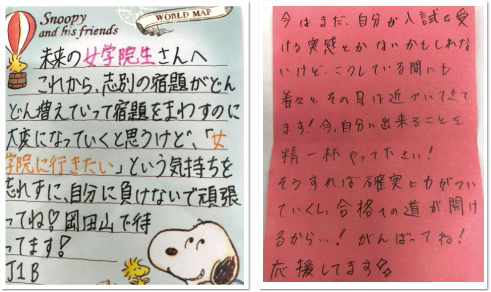 Snoopy
and his friends
WORLD MAP
未来の女学院生さんへ
これから、志別の宿題がどん
どん増えていって宿題をまわすのに
大変になっていくと思うけど、「女
学院に行きたい」という気持ちを
忘れずに、自分に負けないで頑張
ってね♡岡田山で待
ってます!
J1B
今はまだ、自分が入試を受
ける実感とかないかもしれな
いけど、こうしている間にも
着々とその日は近づいてきて
ます!今、自分に出来ることを
精一杯やって下さい!
そうすれば確実に力がつい
ていくし、合格への道が開け
るから…!がんばってね!
応援してます